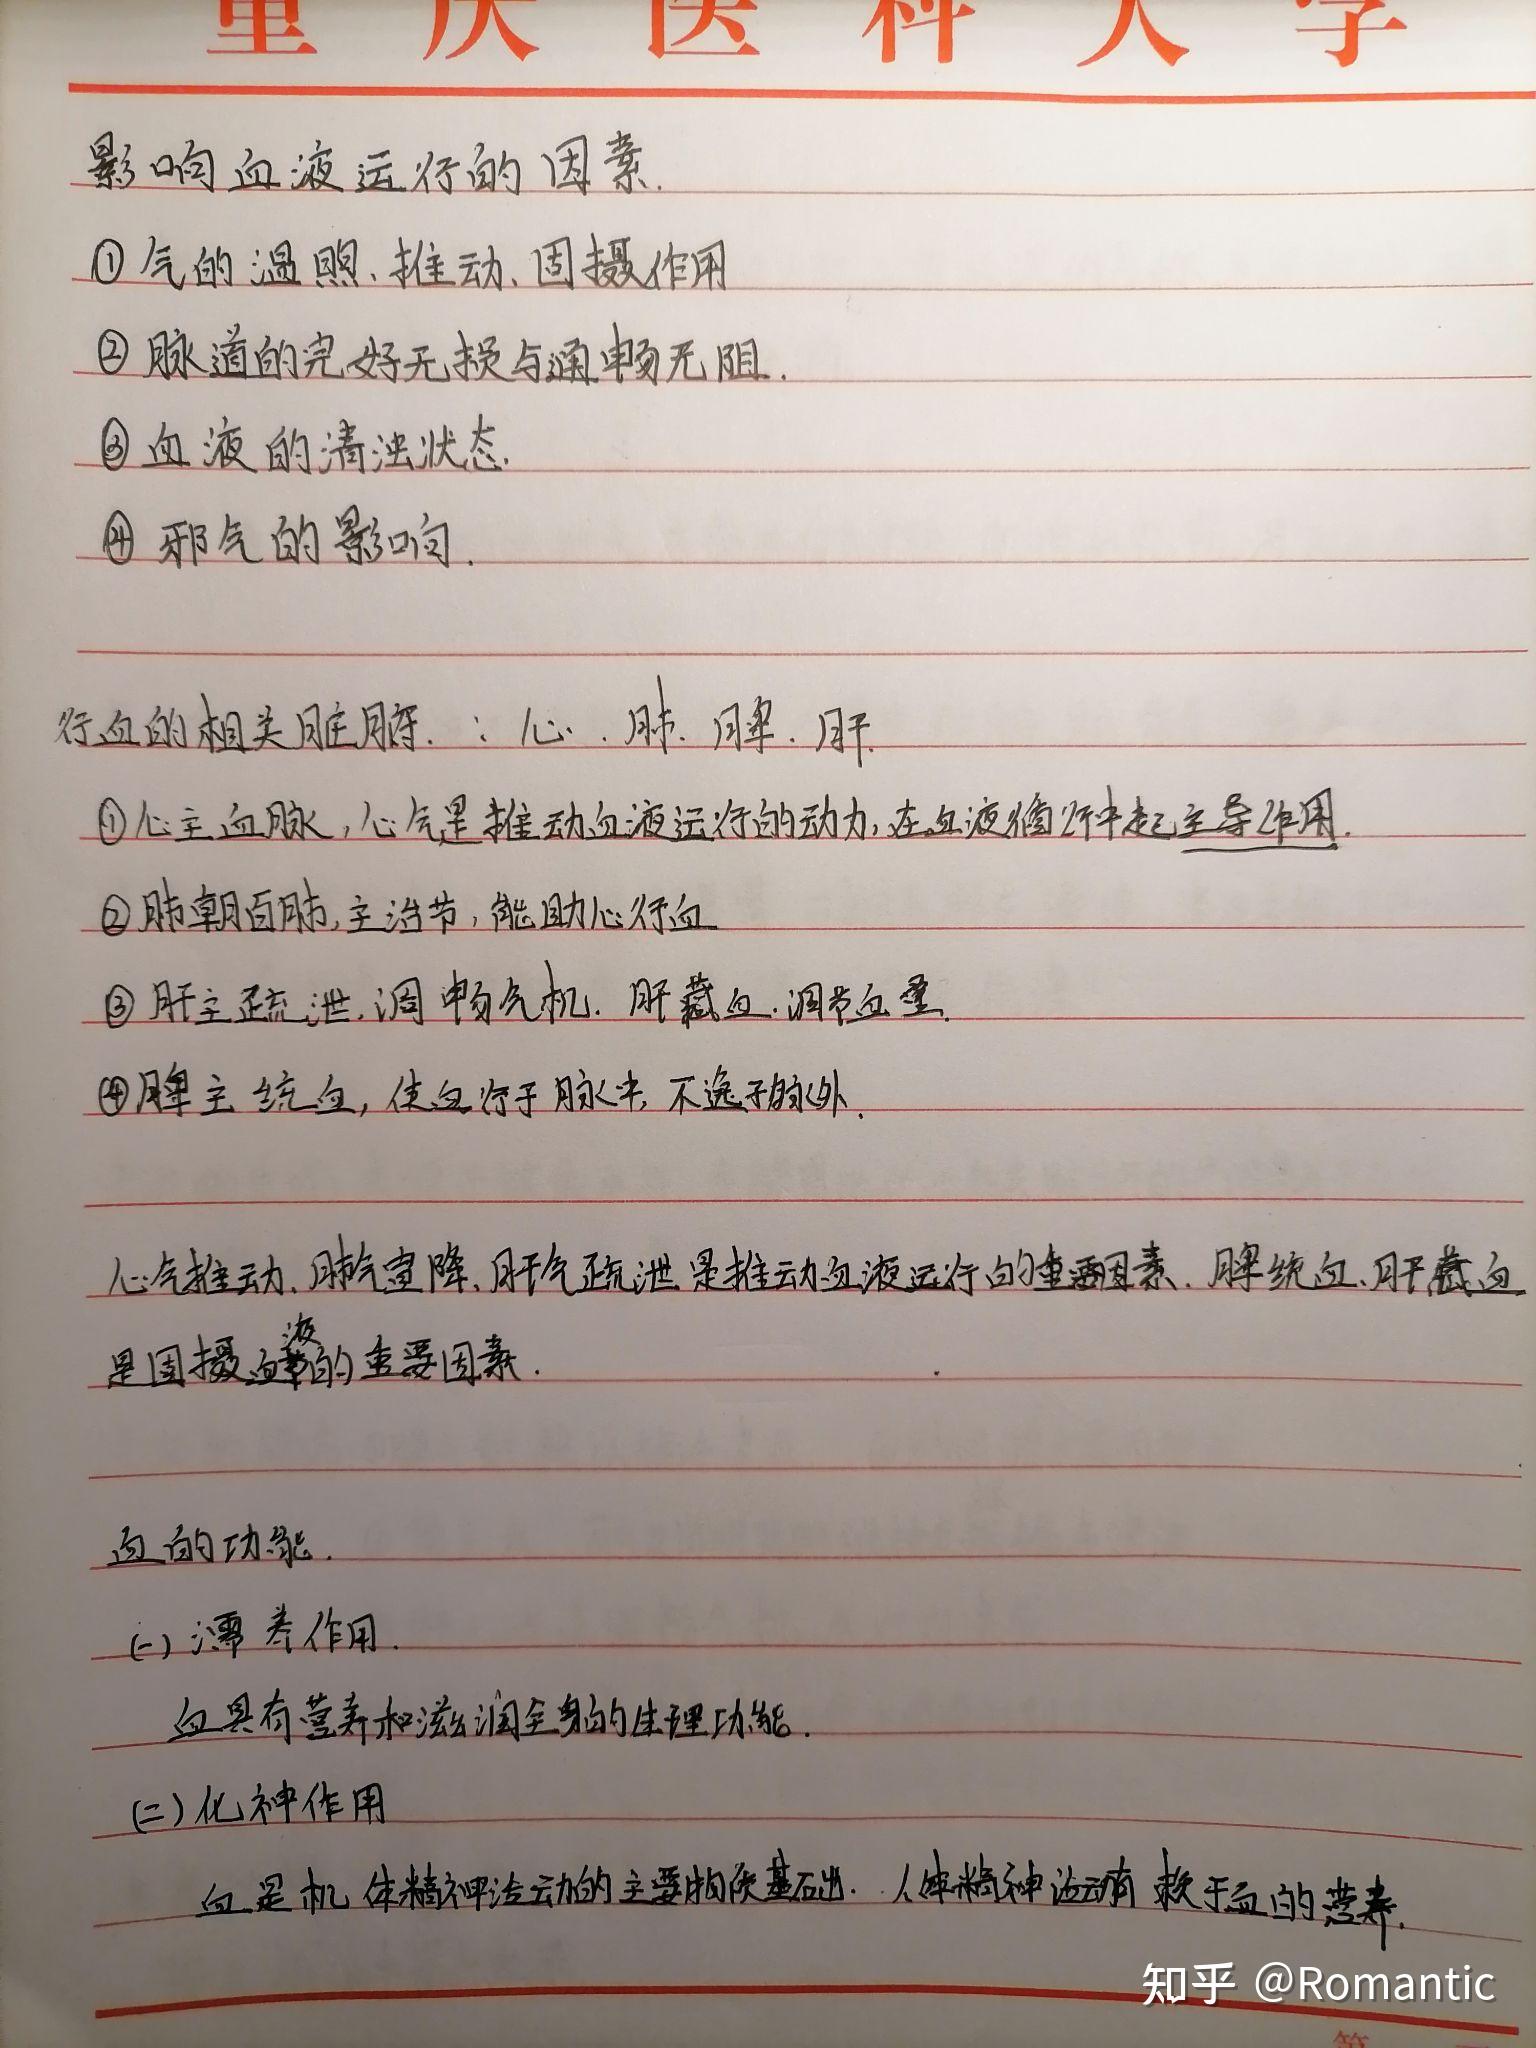 重庆医科大学
影响血液运行的因素.
①气的温煦、推动、固摄作用
②脉道的完好无损与通畅无阻.
③血液的清浊状态.
④邪气的影响.
行血的相关脏腑.：心.肺.脾.肝.
①心主血脉,心气是推动血液运行的动力,在血液循行中起主导作用.
②肺朝百脉,主治节,能助心行血
③肝主疏泄.调畅气机.肝藏血.调节血量.
④脾主统血,使血行于脉中,不逸于脉外.
心气推动、肺气宣降、肝气疏泄是推动血液运行的重要因素.脾统血、肝藏血
是固摄血液的重要因素.
血的功能.
(一)濡养作用.
血具有营养和滋润全身的生理功能.
(二)化神作用
血是机体精神活动的主要物质基础.人体精神活动有赖于血的营养.
知乎 @Romantic
第